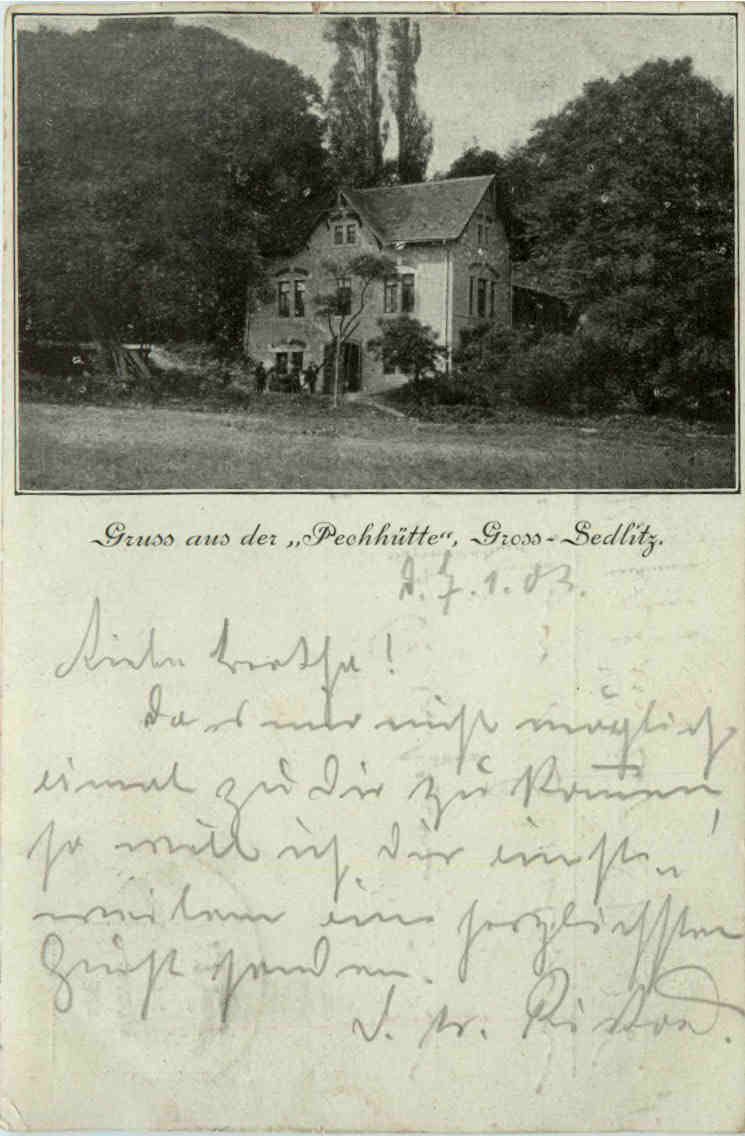 Gruss aus der „Pechhütte“, Gross-Sedlitz.
d. 7.1.03.
Liebe Bertha!
Da es mir nicht möglich
einmal zu Dir zu kommen,
so will ich Dir einst-
weilen
herzlichsten
Gruß senden.